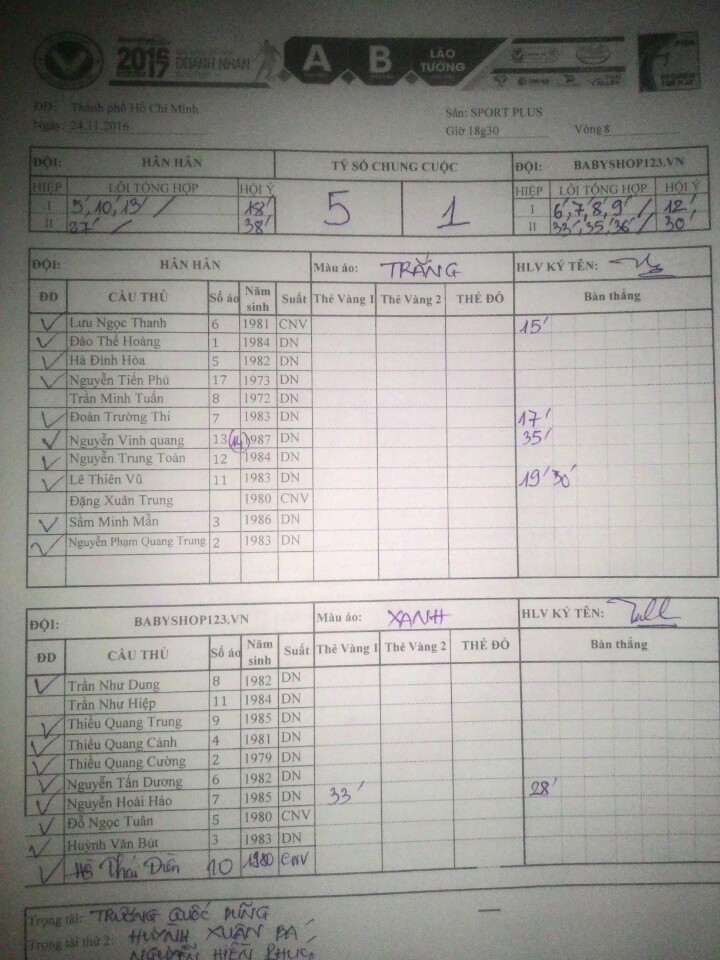 2016
2017
DOANH NHÂN
A B LÃO TƯỚNG
ĐĐ: Thành phố Hồ Chí Minh
Sân: SPORT PLUS
Ngày: 24.11.2016 Giờ 18g30 Vòng 8
ĐỘI: HÂN HÂN TỶ SỐ CHUNG CUỘC ĐỘI: BABYSHOP123.VN
HIỆP LỖI TỔNG HỢP HỘI Ý 5 1 HIỆP LỖI TỔNG HỢP HỘI Ý
I 5', 10', 13' / 18' I 6', 7', 8', 9' / 12'
II 27' / 38' II 33', 35', 36' / 30'
ĐỘI: HÂN HÂN Màu áo: TRẮNG HLV KÝ TÊN:
ĐD CẦU THỦ Số áo Năm sinh Suất Thẻ Vàng 1 Thẻ Vàng 2 THẺ ĐỎ Bàn thắng
✓ Lưu Ngọc Thanh 6 1981 CNV 15'
✓ Đào Thế Hoàng 1 1984 DN
✓ Hà Đình Hòa 5 1982 DN
✓ Nguyễn Tiến Phú 17 1973 DN
Trần Minh Tuấn 8 1972 DN
✓ Đoàn Trường Thi 7 1983 DN 17'
✓ Nguyễn Vinh quang 13 (14) 1987 DN 35'
✓ Nguyễn Trung Toàn 12 1984 DN
✓ Lê Thiên Vũ 11 1983 DN 19' 30'
Đặng Xuân Trung 1980 CNV
✓ Sầm Minh Mẫn 3 1986 DN
✓ Nguyễn Phạm Quang Trung 2 1983 DN
ĐỘI: BABYSHOP123.VN Màu áo: XANH HLV KÝ TÊN:
ĐD CẦU THỦ Số áo Năm sinh Suất Thẻ Vàng 1 Thẻ Vàng 2 THẺ ĐỎ Bàn thắng
✓ Trần Như Dung 8 1982 DN
Trần Như Hiệp 11 1984 DN
✓ Thiều Quang Trung 9 1985 DN
✓ Thiều Quang Cảnh 4 1981 DN
✓ Thiều Quang Cường 2 1979 DN
✓ Nguyễn Tấn Dương 6 1982 DN
✓ Nguyễn Hoài Hảo 7 1985 DN 33' 28'
✓ Đỗ Ngọc Tuân 5 1980 CNV
✓ Huỳnh Văn Bút 3 1983 DN
✓ Hồ Thái Diễn 10 1980 CNV
Trọng tài: TRƯƠNG QUỐC DŨNG
Trọng tài thứ 2: HUỲNH XUÂN BÁ
NGUYỄN HIỀN